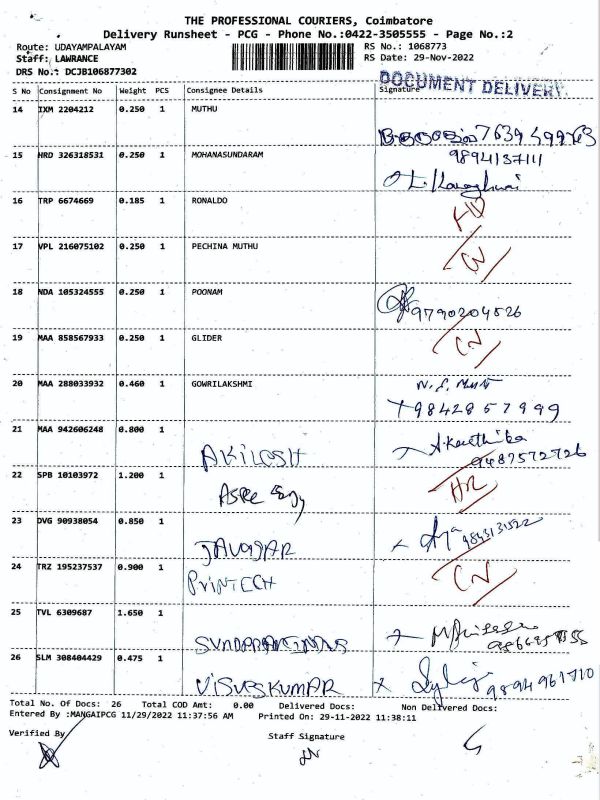 THE PROFESSIONAL COURIERS, Coimbatore
Delivery Runsheet - PCG - Phone No.:0422-3505555 - Page No.:2
Route: UDAYAMPALAYAM RS No.: 1068773
Staff: LAWRANCE RS Date: 29-Nov-2022
DRS No.: DCJB106877302
DOCUMENT DELIVERY
S No Consignment No Weight PCS Consignee Details Signature
14 IXM 2204212 0.250 1 MUTHU
7639499763
15 HRD 326318531 0.250 1 MOHANASUNDARAM
9894137111
16 TRP 6674669 0.185 1 RONALDO
17 VPL 216075102 0.250 1 PECHINA MUTHU
CN
18 NDA 105324555 0.250 1 POONAM
9790204526
19 MAA 858567933 0.250 1 GLIDER
CN
20 MAA 288033932 0.460 1 GOWRILAKSHMI
9842857999
21 MAA 942606248 0.800 1 AKILESH
A.Keerthika
9487572726
22 SPB 10103972 1.200 1
HR
23 DVG 90938054 0.850 1 JAVAGAR
24 TRZ 195237537 0.900 1 PRINTECH
CN
25 TVL 6309687 1.650 1
26 SLM 308404429 0.475 1 VISVESKUMAR
9894961710
Total No. Of Docs: 26 Total COD Amt: 0.00 Delivered Docs: Non Delivered Docs:
Entered By :MANGAIPCG 11/29/2022 11:37:56 AM Printed On: 29-11-2022 11:38:11
Verified By Staff Signature